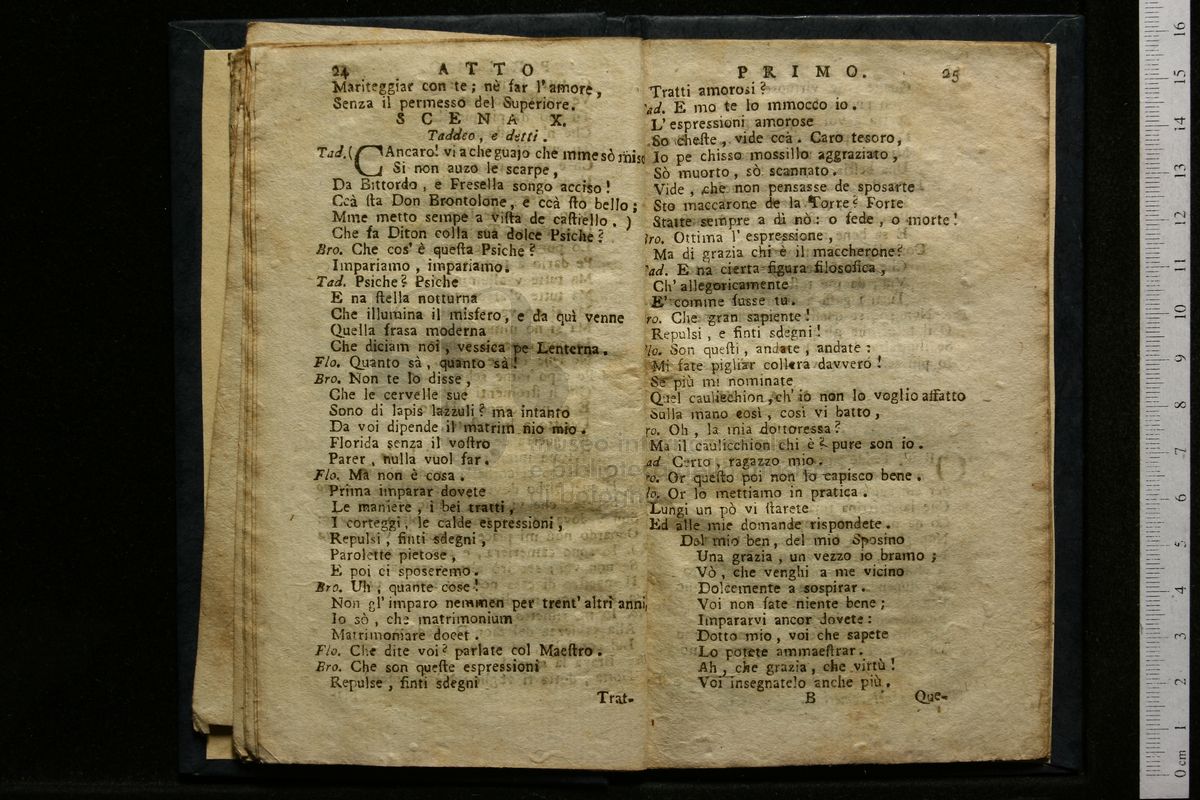 24 ATTO
Mariteggiar con te; nè far l'amore,
Senza il permesso del Superiore.
SCENA X.
Taddeo, e detti.
Tad. (CAncaro! vi a che guajo che mme sò miso
Si non auzo le scarpe,
Da Bittordo, e Fresella songo acciso!
Ccà ſta Don Brontolone, e ccà ſto bello;
Mme metto sempe a viſta de caſtiello. )
Che fa Diton colla sua dolce Psiche?
Bro. Che cos' è queſta Psiche?
Impariamo, impariamo.
Tad. Psiche? Psiche
E na ſtella notturna
Che illumina il misfero, e da quì venne
Quella frasa moderna
Che diciam noi, vessica pe Lenterna.
Flo. Quanto sà, quanto sà!
Bro. Non te lo disse,
Che le cervelle sue
Sono di lapis lazzuli? ma intanto
Da voi dipende il matrim nio mio.
Florida senza il voſtro
Parer, nulla vuol far.
Flo. Ma non è cosa.
Prima imparar dovete
Le maniere, i bei tratti,
I corteggi, le calde espressioni,
Repulsi, finti sdegni,
Parolette pietose,
E poi ci sposeremo.
Bro. Uh, quante cose!
Non gl' imparo nemmen per trent' altri anni,
Io sò, che matrimonium
Matrimoniare docet.
Flo. Che dite voi? parlate col Maeſtro.
Bro. Che son queſte espressioni
Repulse, finti sdegni
Trat-
PRIMO. 25
Tratti amorosi?
ad. E mo te lo mmocco io.
L' espressioni amorose
So cheſte, vide ccà. Caro tesoro,
Io pe chisso mossillo aggraziato,
Sò muorto, sò scannato.
Vide, che non pensasse de sposarte
Sto maccarone de la Torre? Forte
Statte sempre a di nò: o fede, o morte!
ro. Ottima l' espressione,
Ma di grazia chi è il maccherone?
ad. E na cierta figura filosofica,
Ch' allegoricamente
E' comme fusse tu.
ro. Che gran sapiente!
Repulsi, e finti sdegni!
lo. Son queſti, andate, andate:
Mi fate pigliar collera davvero!
Se più mi nominate
Quel caulicchion, ch' io non lo voglio affatto
Sulla mano così, così vi batto,
ro. Oh, la mia dottoressa?
Ma il caulicchion chi è? pure son io.
ad Certo, ragazzo mio.
ro. Or queſto poi non lo capisco bene.
lo. Or lo mettiamo in pratica.
Lungi un pò vi ſtarete
Ed alle mie domande rispondete.
Dal mio ben, del mio Sposino
Una grazia, un vezzo io bramo;
Vò, che venghi a me vicino
Dolcemente a sospirar.
Voi non fate niente bene;
Impararvi ancor dovete:
Dotto mio, voi che sapete
Lo potete ammaeſtrar.
Ah, che grazia, che virtù!
Voi insegnatelo anche più.
B Que-
0 cm 1 2 3 4 5 6 7 8 9 10 11 12 13 14 15 16